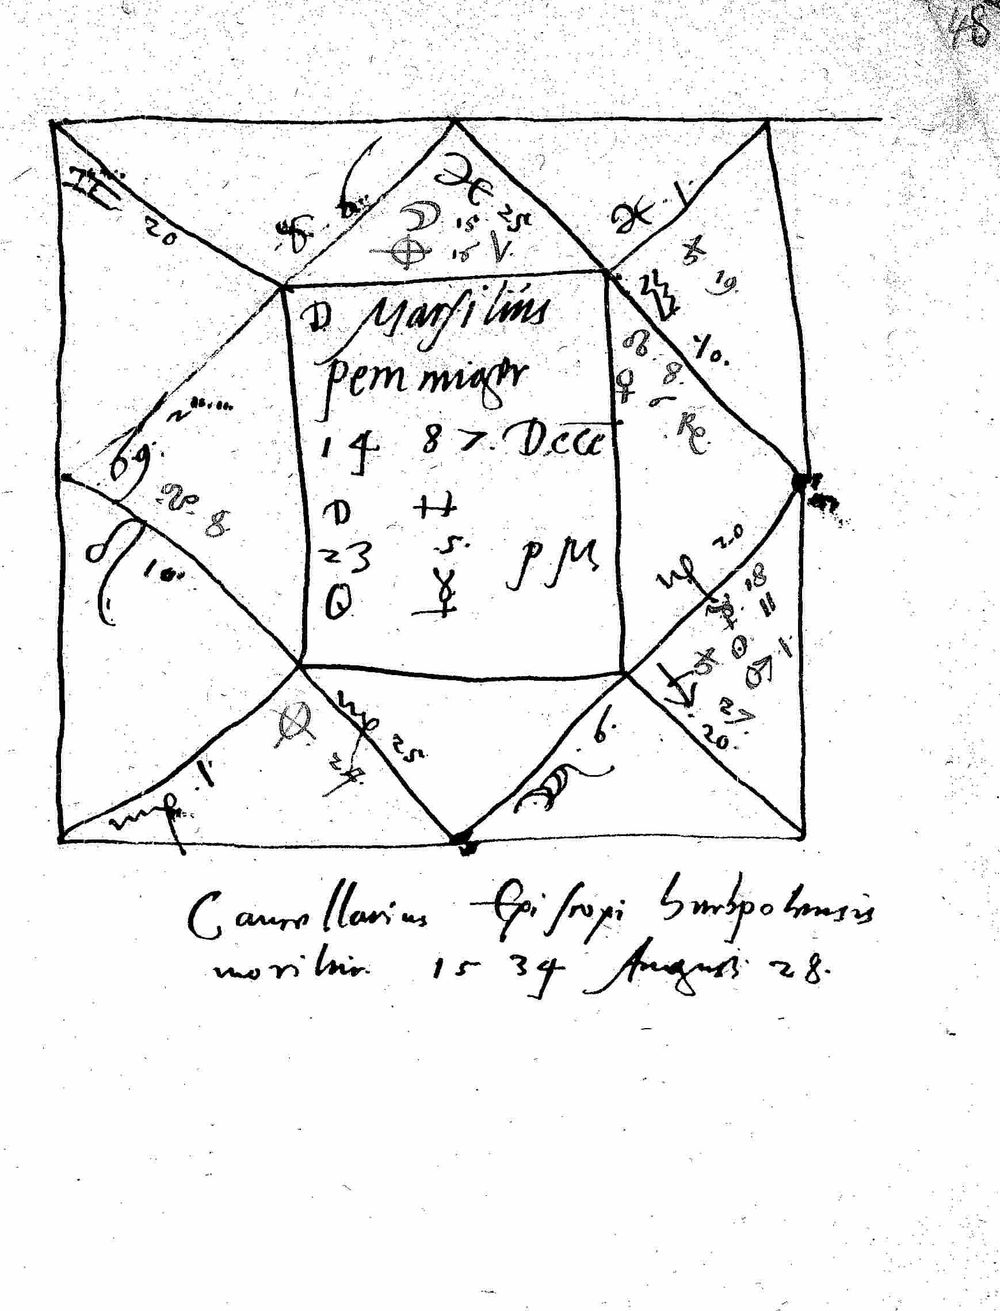 48
♓ 25
☽ 15
⊕ 15 V
♓ 1
♊ 20
19
♒ 10
☊ 8
♀
℞
D Marsilius
pem miger
14 87. Dece
D H
23 5. p M
☿
♋
8
♌ 10
♍ 20
18
11
☉ ♂ 1
27
♐ 20
♍ 25
24
♍ 1
6
Cancellarius Episcopi herbpolensis
moritur 15 34 August 28.